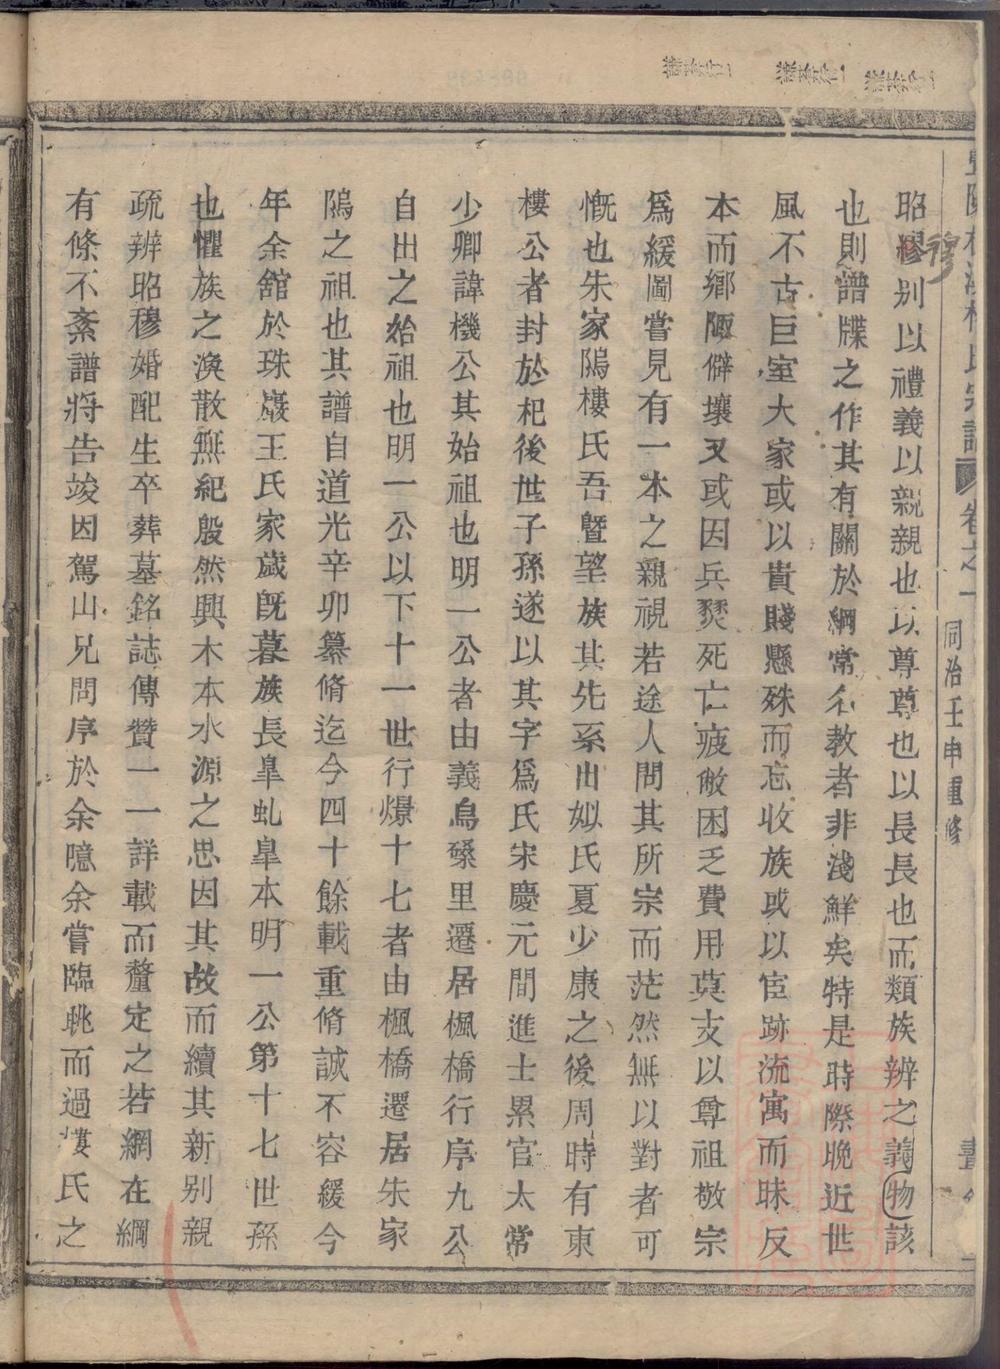 卷之一 同治壬申重修
昭繆别以禮義以親親也以尊尊也以長長也而類族辨之義物該
穆
也則譜牒之作其有關於綱常名教者非淺鮮矣特是時際晚近世
風不古巨室大家或以貴賤懸殊而忘收族或以宦跡流寓而昧反
本而鄉陬僻壤又或因兵燹死亡疲敝困乏費用莫支以尊祖敬宗
爲緩圖嘗見有一本之親視若途人問其所宗而茫然無以對者可
慨也朱家隖樓氏吾暨望族其先系出姒氏夏少康之後周時有東
樓公者封於杞後世子孫遂以其字爲氏宋慶元間進士累官太常
少卿諱機公其始祖也明一公者由義烏磉里遷居楓橋行序九公
自出之始祖也明一公以下十一世行爆十七者由楓橋遷居朱家
隖之祖也其譜自道光辛卯纂脩迄今四十餘載重脩誠不容緩今
年余舘於珠巖王氏家歲旣暮族長臯虬臯本明一公第十七世孫
也懼族之渙散無紀殷然興木本水源之思因其故而續其新别親
疏辨昭穆婚配生卒葬墓銘誌傳贊一一詳載而釐定之若網在綱
有條不紊譜將告竣因駕山兄問序於余噫余嘗臨眺而過樓氏之